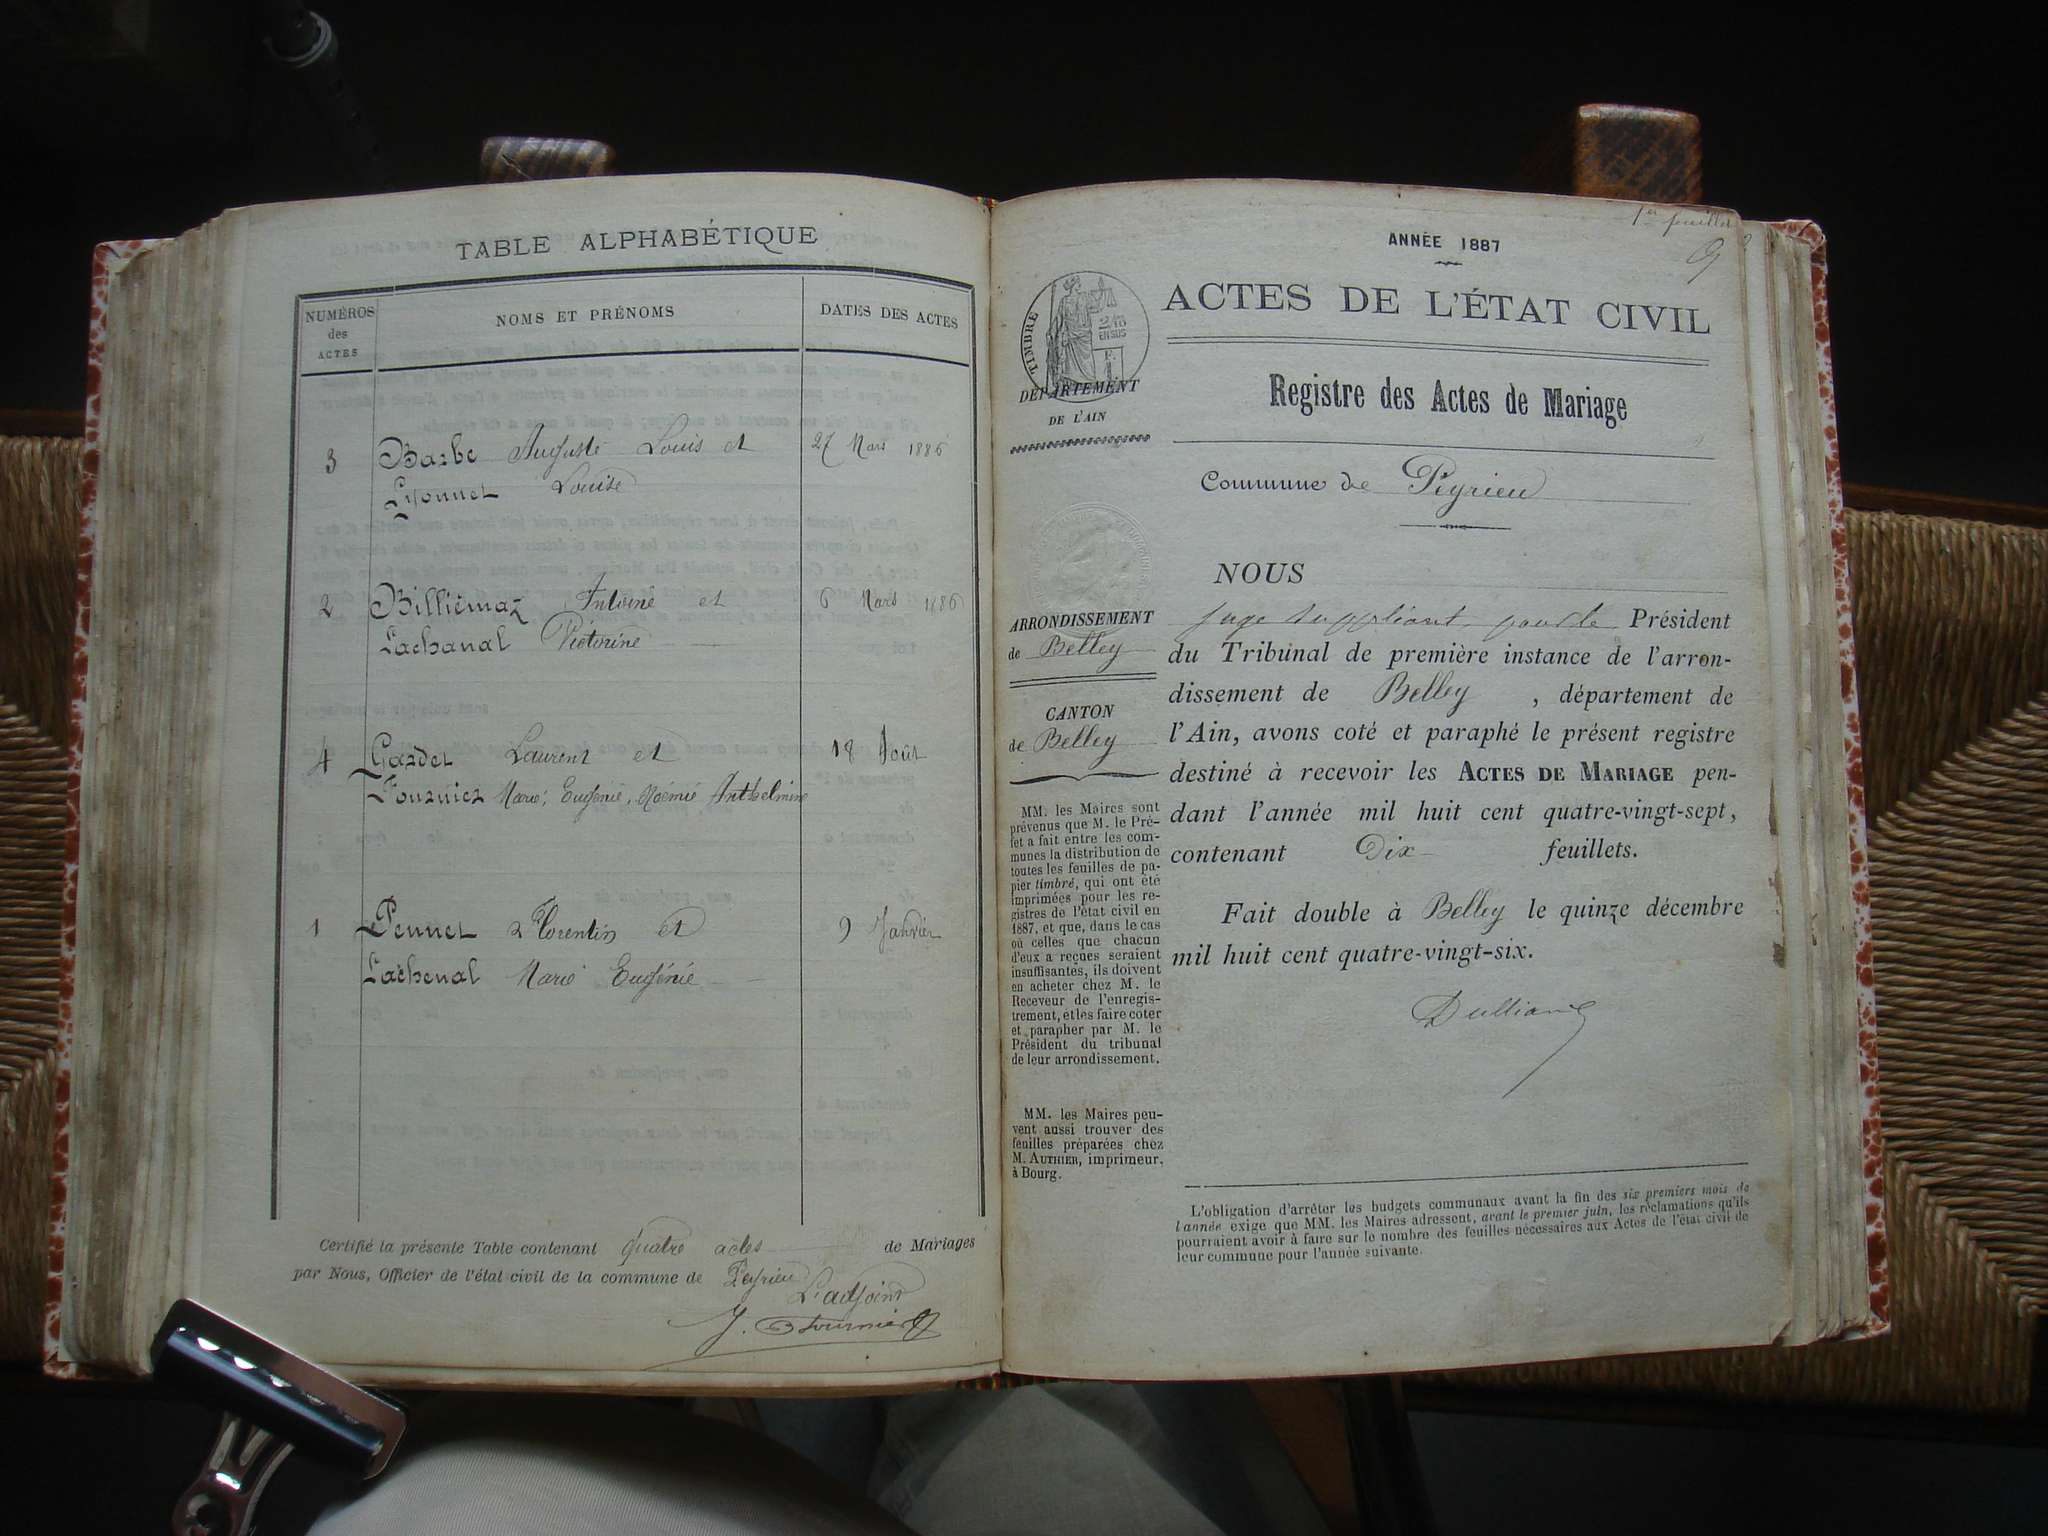 TABLE ALPHABÉTIQUE
NUMÉROS
des
ACTES
NOMS ET PRÉNOMS
DATES DES ACTES
3 Barbe Auguste Louis et 27 Mars 1886
Lyonnet Louise
2 Billiémaz Antoine et 6 Mars 1886
Lachanal Victorine
4 Gardet Laurent et 18 Août
Fournier Marie, Eugénie, Noémie Anthelmine
1 Pennet Florentin et 9 Janvier
Lachenal Marie Eugénie
Certifié la présente Table contenant quatre actes de Mariages
par Nous, Officier de l'état civil de la commune de Peyrieu
L'adjoint
J. Fournier
1er feuillet
ANNÉE 1887
ACTES DE L'ÉTAT CIVIL
TIMBRE
2/10
EN SUS
DÉPARTEMENT
DE L'AIN
Registre des Actes de Mariage
Commune de Peyrieu
NOUS
juge suppléant pour le Président
du Tribunal de première instance de l'arron-
dissement de Belley, département de
l'Ain, avons coté et paraphé le présent registre
destiné à recevoir les ACTES DE MARIAGE pen-
dant l'année mil huit cent quatre-vingt-sept,
contenant Dix feuillets.
Fait double à Belley le quinze décembre
mil huit cent quatre-vingt-six.
ARRONDISSEMENT
de Belley
CANTON
de Belley
MM. les Maires sont
prévenus que M. le Pré-
fet a fait entre les com-
munes la distribution de
toutes les feuilles de pa-
pier timbré, qui ont été
imprimées pour les re-
gistres de l'état civil en
1887, et que, dans le cas
où celles que chacun
d'eux a reçues seraient
insuffisantes, ils doivent
en acheter chez M. le
Receveur de l'enregis-
trement, et les faire coter
et parapher par M. le
Président du tribunal
de leur arrondissement.
MM. les Maires peu-
vent aussi trouver des
feuilles préparées chez
M. AUTHIER, imprimeur,
à Bourg.
L'obligation d'arrêter les budgets communaux avant la fin des six premiers mois de
l'année exige que MM. les Maires adressent, avant le premier juin, les réclamations qu'ils
pourraient avoir à faire sur le nombre des feuilles nécessaires aux Actes de l'état civil de
leur commune pour l'année suivante.